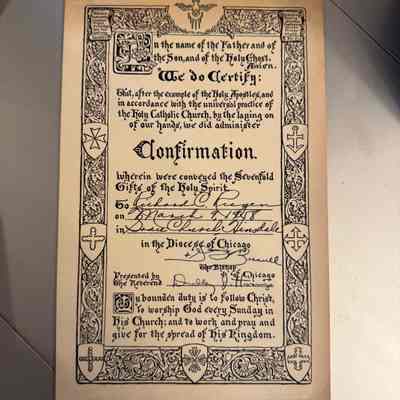 In the name of the Father and of
the Son, and of the Holy Ghost.
Amen.
We do Certify:
That, after the example of the Holy Apostles, and
in accordance with the universal practice of
the Holy Catholic Church, by the laying on
of our hands, we did administer
Confirmation.
Wherein were conveyed the Sevenfold
Gifts of the Holy Spirit
To Richard C.
on March 7, 1948
in Grace Church, Hinsdale
in the Diocese of Chicago
The Bishop
of Chicago
Presented by
The Reverend Dudley J.
My bounden duty is to follow Christ,
to worship God every Sunday in
His Church; and to work and pray and
give for the spread of His Kingdom.